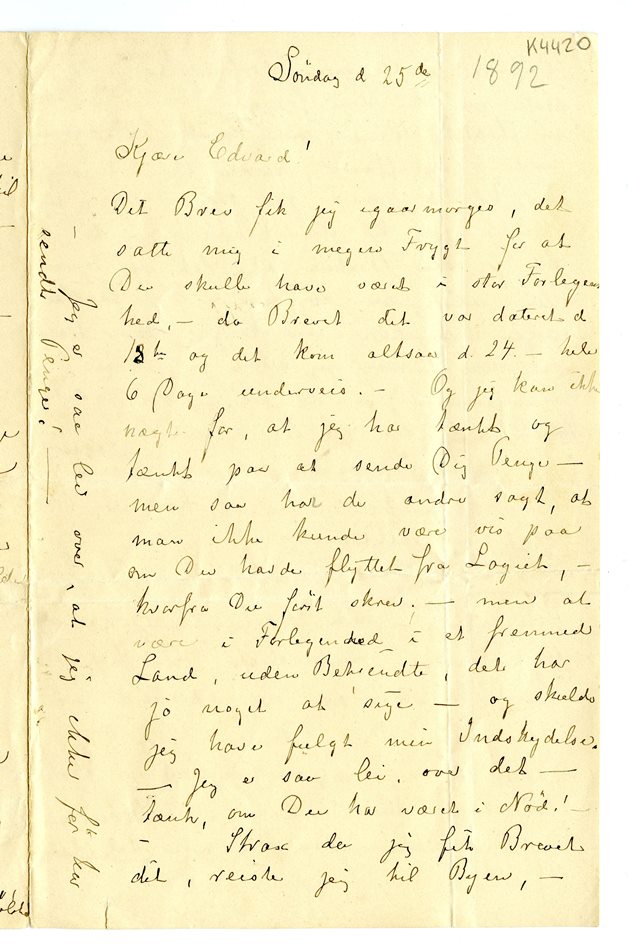 K4420
Söndag d 25de 1892
Kjære Edvard!
Dit Brev fik jeg igaarmorges, det
satte mig i megen Frygt for at
Du skulle have været i stor Forlegen
hed, – da Brevet dit var dateret d
18de og det kom altsaa d. 24. – hele
6 Dage underveis. – Og jeg kan ikke
nægte for, at jeg har tænkt og
tænkt paa at sende Dig Penge –
men saa har de andre sagt, at
man ikke kunde være vis paa
om Du havde flyttet fra Logiet, –
hvorfra Du först skrev; – men at
være i Forlegenhed i et fremmed
Land, uden Bekjendte, det har
jo noget at sige – og skulde
jeg have fulgt min Indskydelse.
– Jeg er saa lei, over det –
tænk, om Du har været i Nöd! –
– Strax da jeg fik Brevet
dit, reiste jeg til Byen, –
– Jeg er saa lei over, at jeg ikke för har
sendt Penge! –